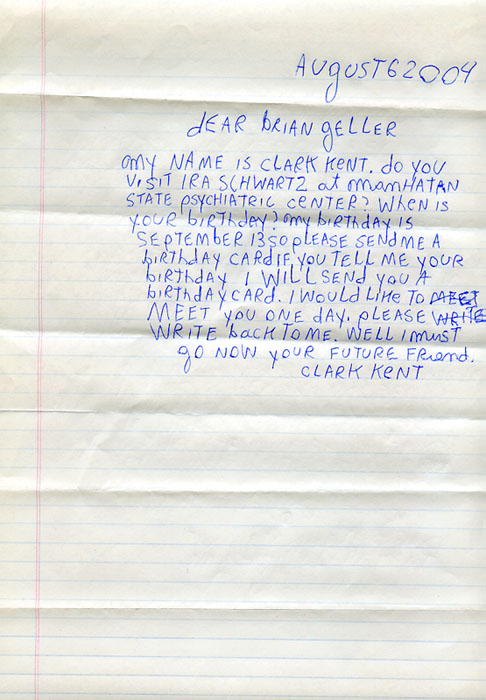 AUGUST 6 2004
dEAR bRIAN gELLER
my NAME IS CLARK KENT. do yOU
VISIT IRA SCHWARTZ at manHATAN
STATE PSyCHIATRIC CENTER? WHEN IS
yOUR biRTHday? my birthday IS
SEPTEMBER 13 SO PLEASE SEND ME A
birthday CARd IF yOU TELL ME yOUR
birTHday I WILL SENd yOU A
birthday CARd. I WOULd LIKE TO MEET
MEET yOU ONE day. PLEASE WRITE
WRITE back TO ME. WELL I must
gO NOW yOUR FUTURE FRiENd.
CLARK KENT